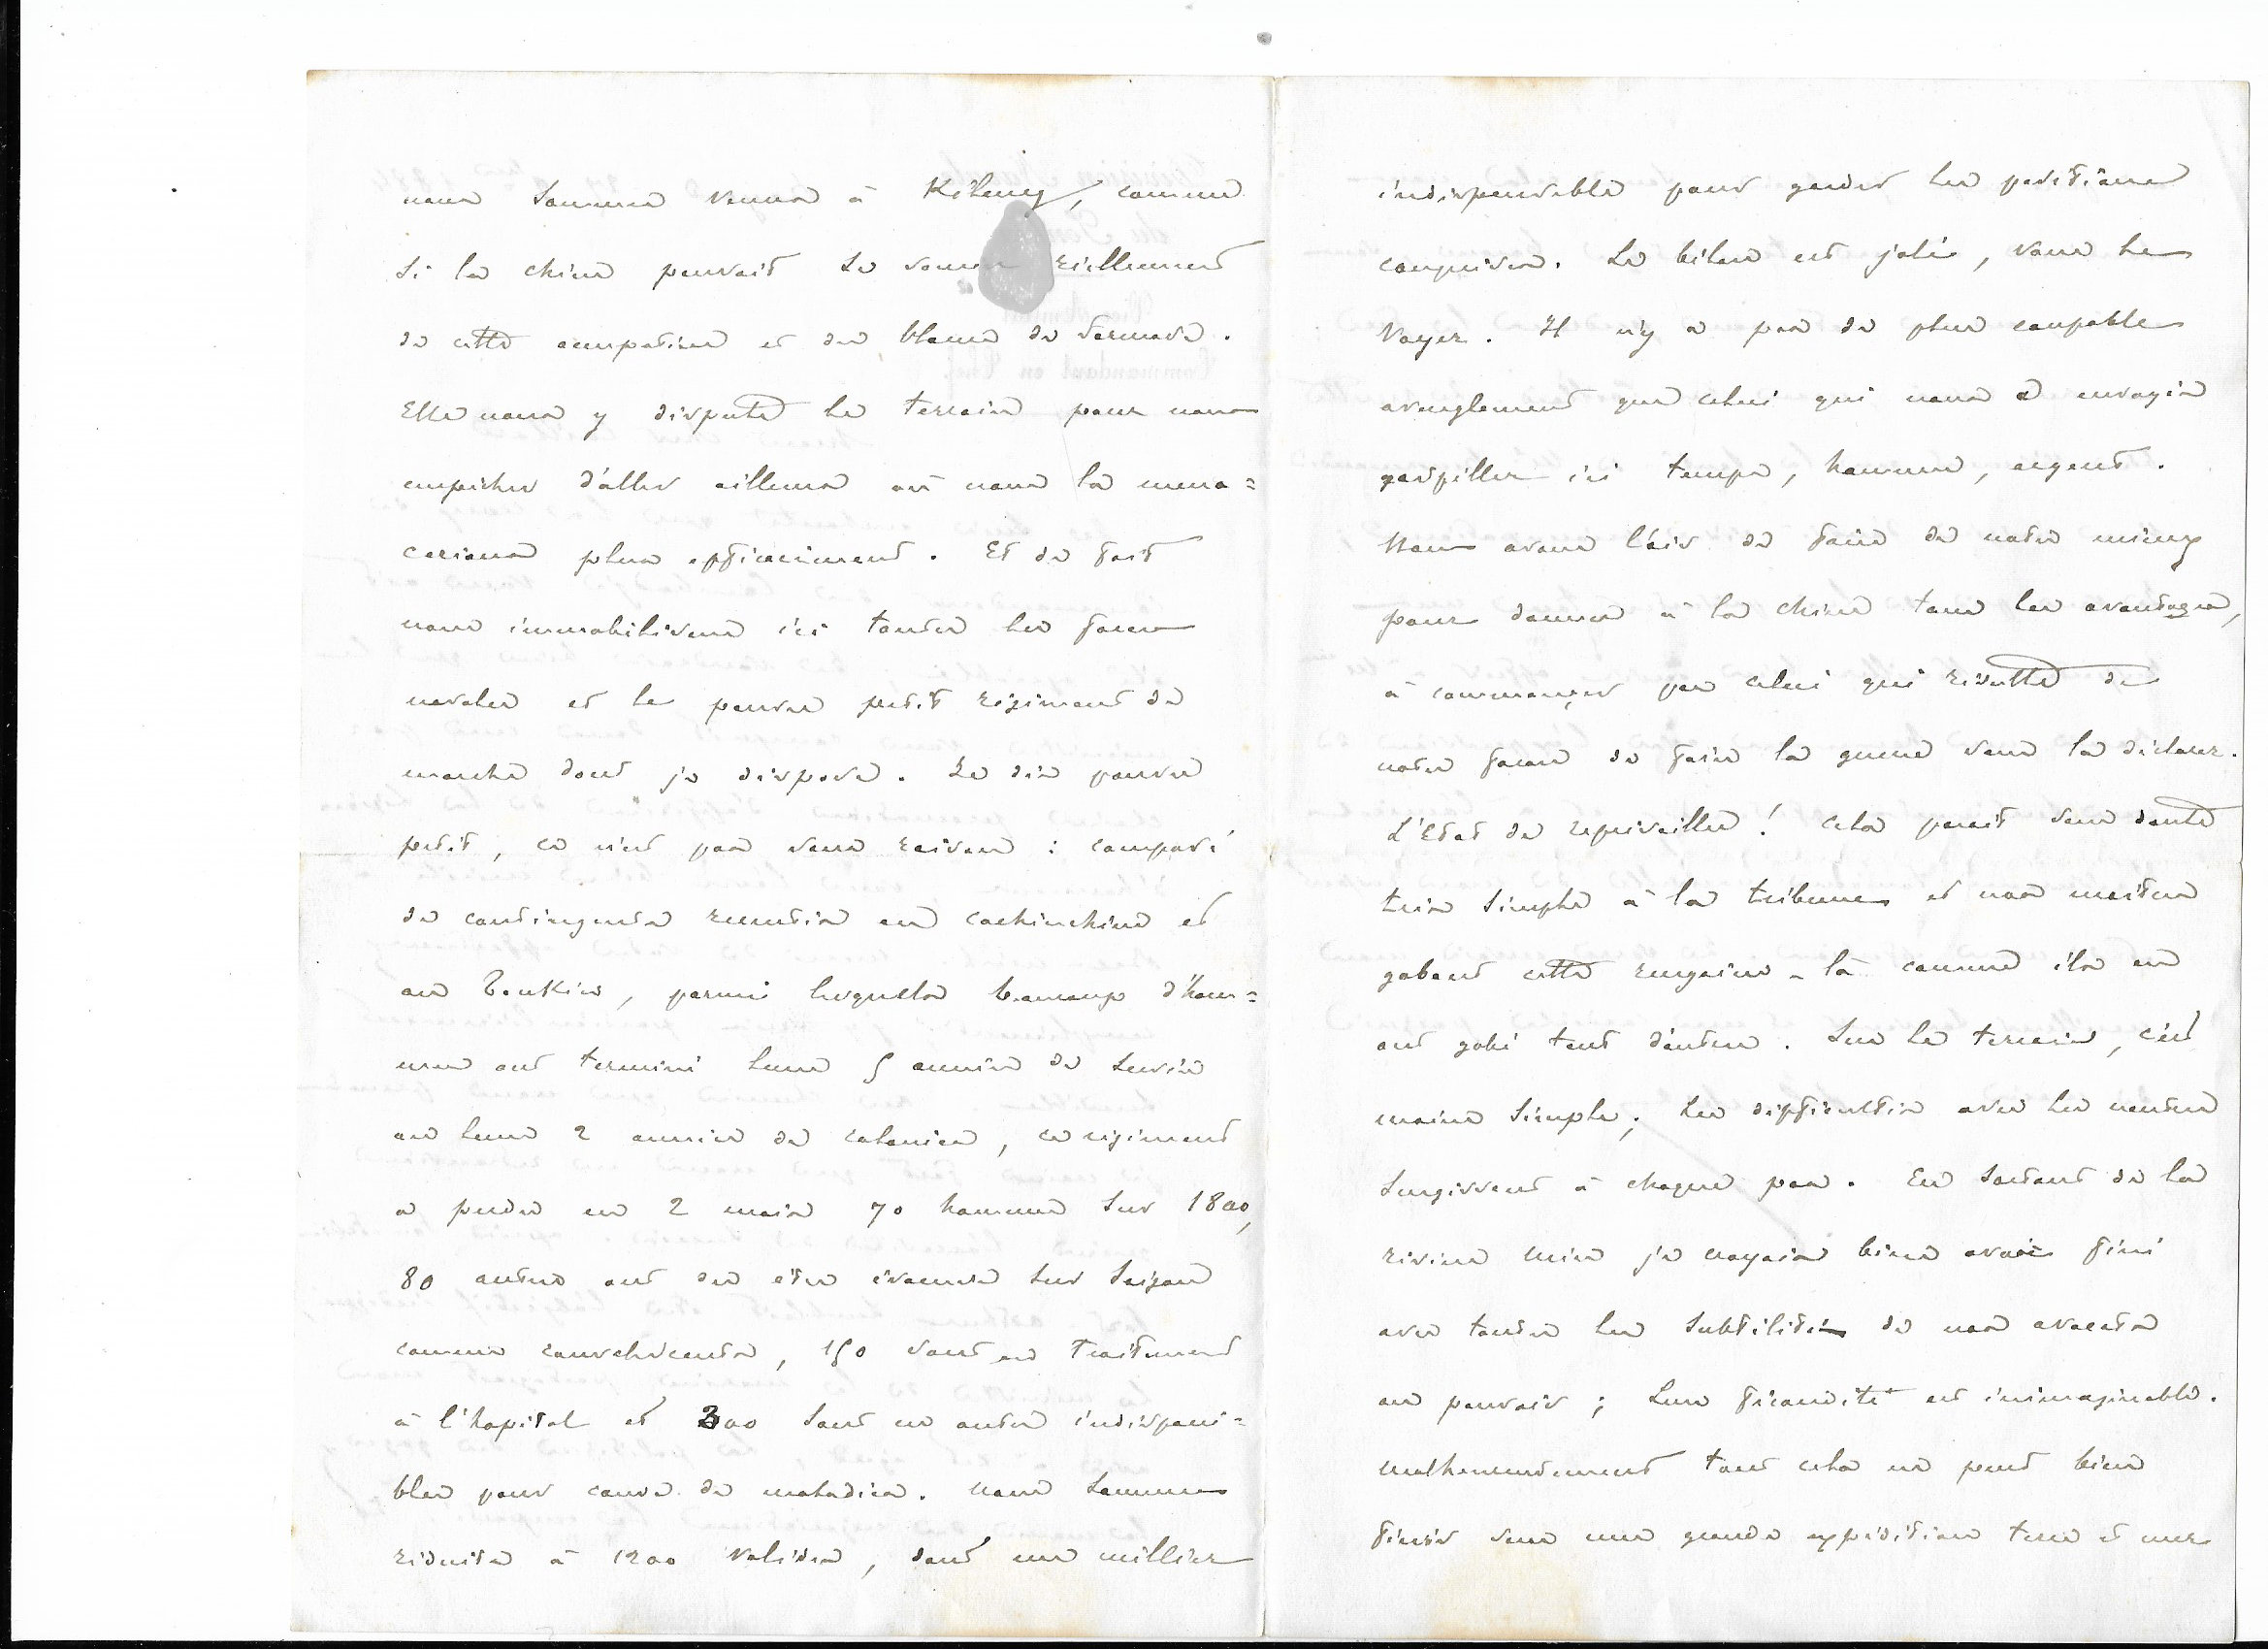 nous sommes venus à Kélung, comme
si la chine pouvait se soucier réellement
de cette occupation et du blocus de Formose.
Elle nous y dispute le terrain pour nous
empêcher d'aller ailleurs où nous la mena=
cerions plus efficacement. Et de fait
nous immobilisons ici toutes les forces
navales et le pauvre petit régiment de
marche dont je dispose. Je dis pauvre
petit, ce n'est pas sans raison : composé
de contingents recrutés en Cochinchine et
au Tonkin, parmi lesquels beaucoup d'hom=
mes ont terminé leurs 5 années de service
ou leurs 2 années de colonies, ce régiment
a perdu en 2 mois 70 hommes sur 1800,
80 autres ont dû être évacués sur Saïgon
comme convalescents, 150 sont en traitement
à l'hopital et 300 sont en outre indisponi=
bles pour cause de maladies. nous sommes
réduits à 1200 valides, dont un millier
indispensable pour garder les positions
conquises. Le bilan est joli, vous le
voyez. Il n'y a pas de plus coupable
aveuglement que celui qui nous a envoyés
gaspiller ici temps, hommes, argent.
Nous avons l'air de faire de notre mieux
pour donner à la chine tous les avantages,
à commencer par celui qui résulte de
notre façon de faire la guerre sans la déclarer.
L'Etat de représailles ! cela parait sans doute
très simple à la tribune et nos maitres
gobent cette rengaine-là comme ils en
ont gobé tant d'autres. Sur le terrain, c'est
moins simple ; les difficultés avec les neutres
surgissent à chaque pas. En sortant de la
rivière Min je croyais bien avoir fini
avec toutes les subtilités de nos avocats
au pouvoir ; leur fécondité est inimaginable.
malheureusement tout cela ne peut bien
finir sans une grande expédition terre et mer